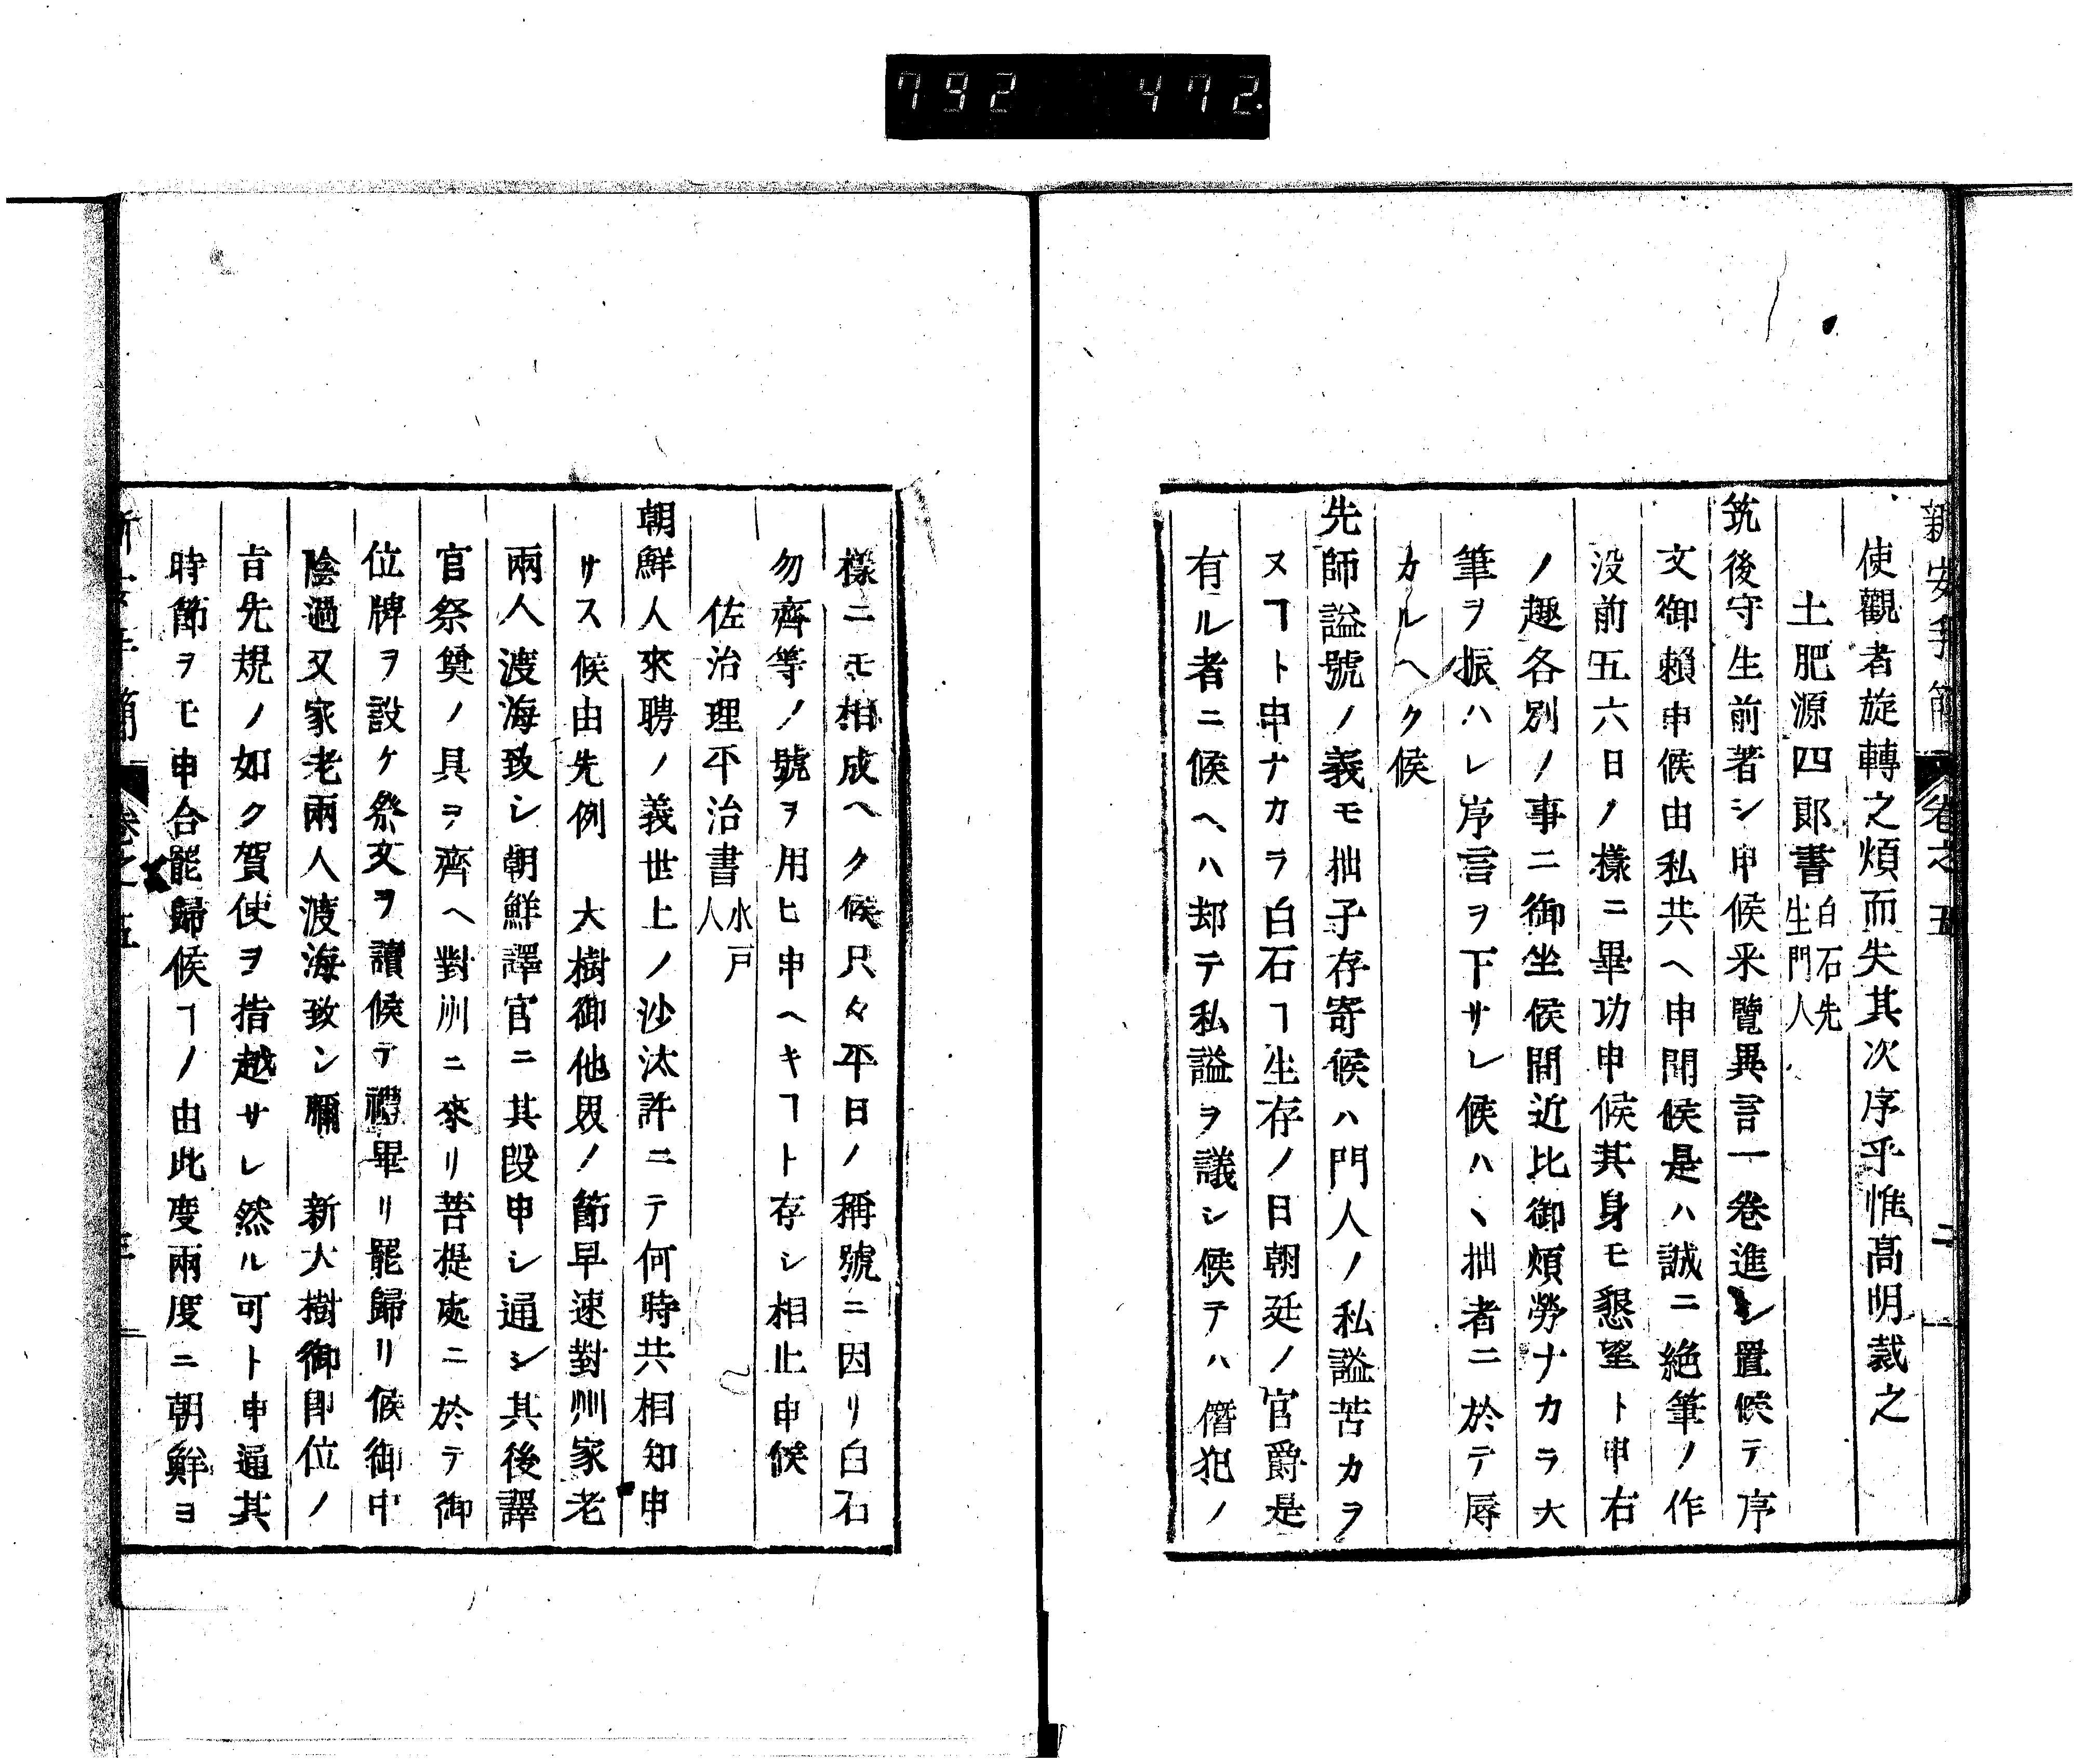 792 472
新安手簡 卷之五 二
使觀者旋轉之煩而失其次序乎惟高明裁之
土肥源四郎書白石先生門人
筑後守生前著シ申候采覽異言一卷進シ置候テ序
文御賴申候由私共ヘ申聞候是ハ誠ニ絶筆ノ作
没前五六日ノ樣ニ畢功申候其身モ懇望ト申右
ノ趣各別ノ事ニ御坐候間近比御煩勞ナカラ大
筆ヲ振ハレ序言ヲ下サレ候ハヽ拙者ニ於テ辱
カルヘク候
先師謚號ノ義モ拙子存寄候ハ門人ノ私謚苦カラ
ヌヿト申ナカラ白石ヿ生存ノ日朝廷ノ官爵是
有ル者ニ候ヘハ却テ私謚ヲ議シ候テハ僭犯ノ
樣ニモ相成ヘク候只々平日ノ稱號ニ因リ白石
勿齊等ノ號ヲ用ヒ申ヘキヿト存シ相止申候
佐治理平治書水戸人
朝鮮人來聘ノ義世上ノ沙汰許ニテ何時共相知申
サス候由先例 大樹御他界ノ節早速對州家老
兩人渡海致シ朝鮮譯官ニ其段申シ通シ其後譯
官祭奠ノ具ヲ齊ヘ對州ニ來リ菩提處ニ於テ御
位牌ヲ設ケ祭文ヲ讀候テ禮畢リ罷歸リ候御中
陰過又家老兩人渡海致シ 新大樹御即位ノ
旨先規ノ如ク賀使ヲ指越サレ然ル可ト申通其
時節ヲモ申合罷歸候ヿノ由此度兩度ニ朝鮮ヨ
新安手簡 卷之五 三